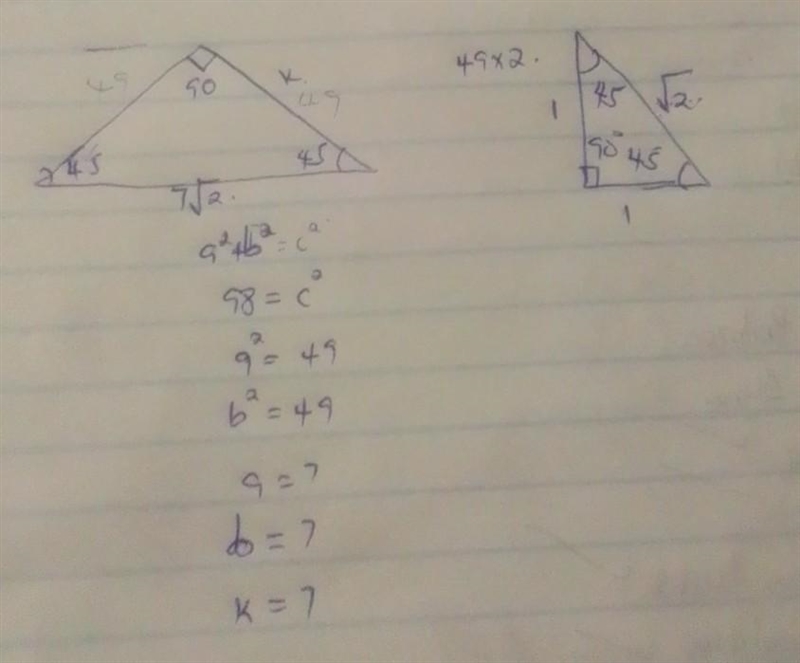 49
90
k
49
45
45
7√2.
49×2.
45
√2.
1
90°
45
1
a²+b²=c²
98=c²
a²=49
b²=49
a=7
b=7
k=7